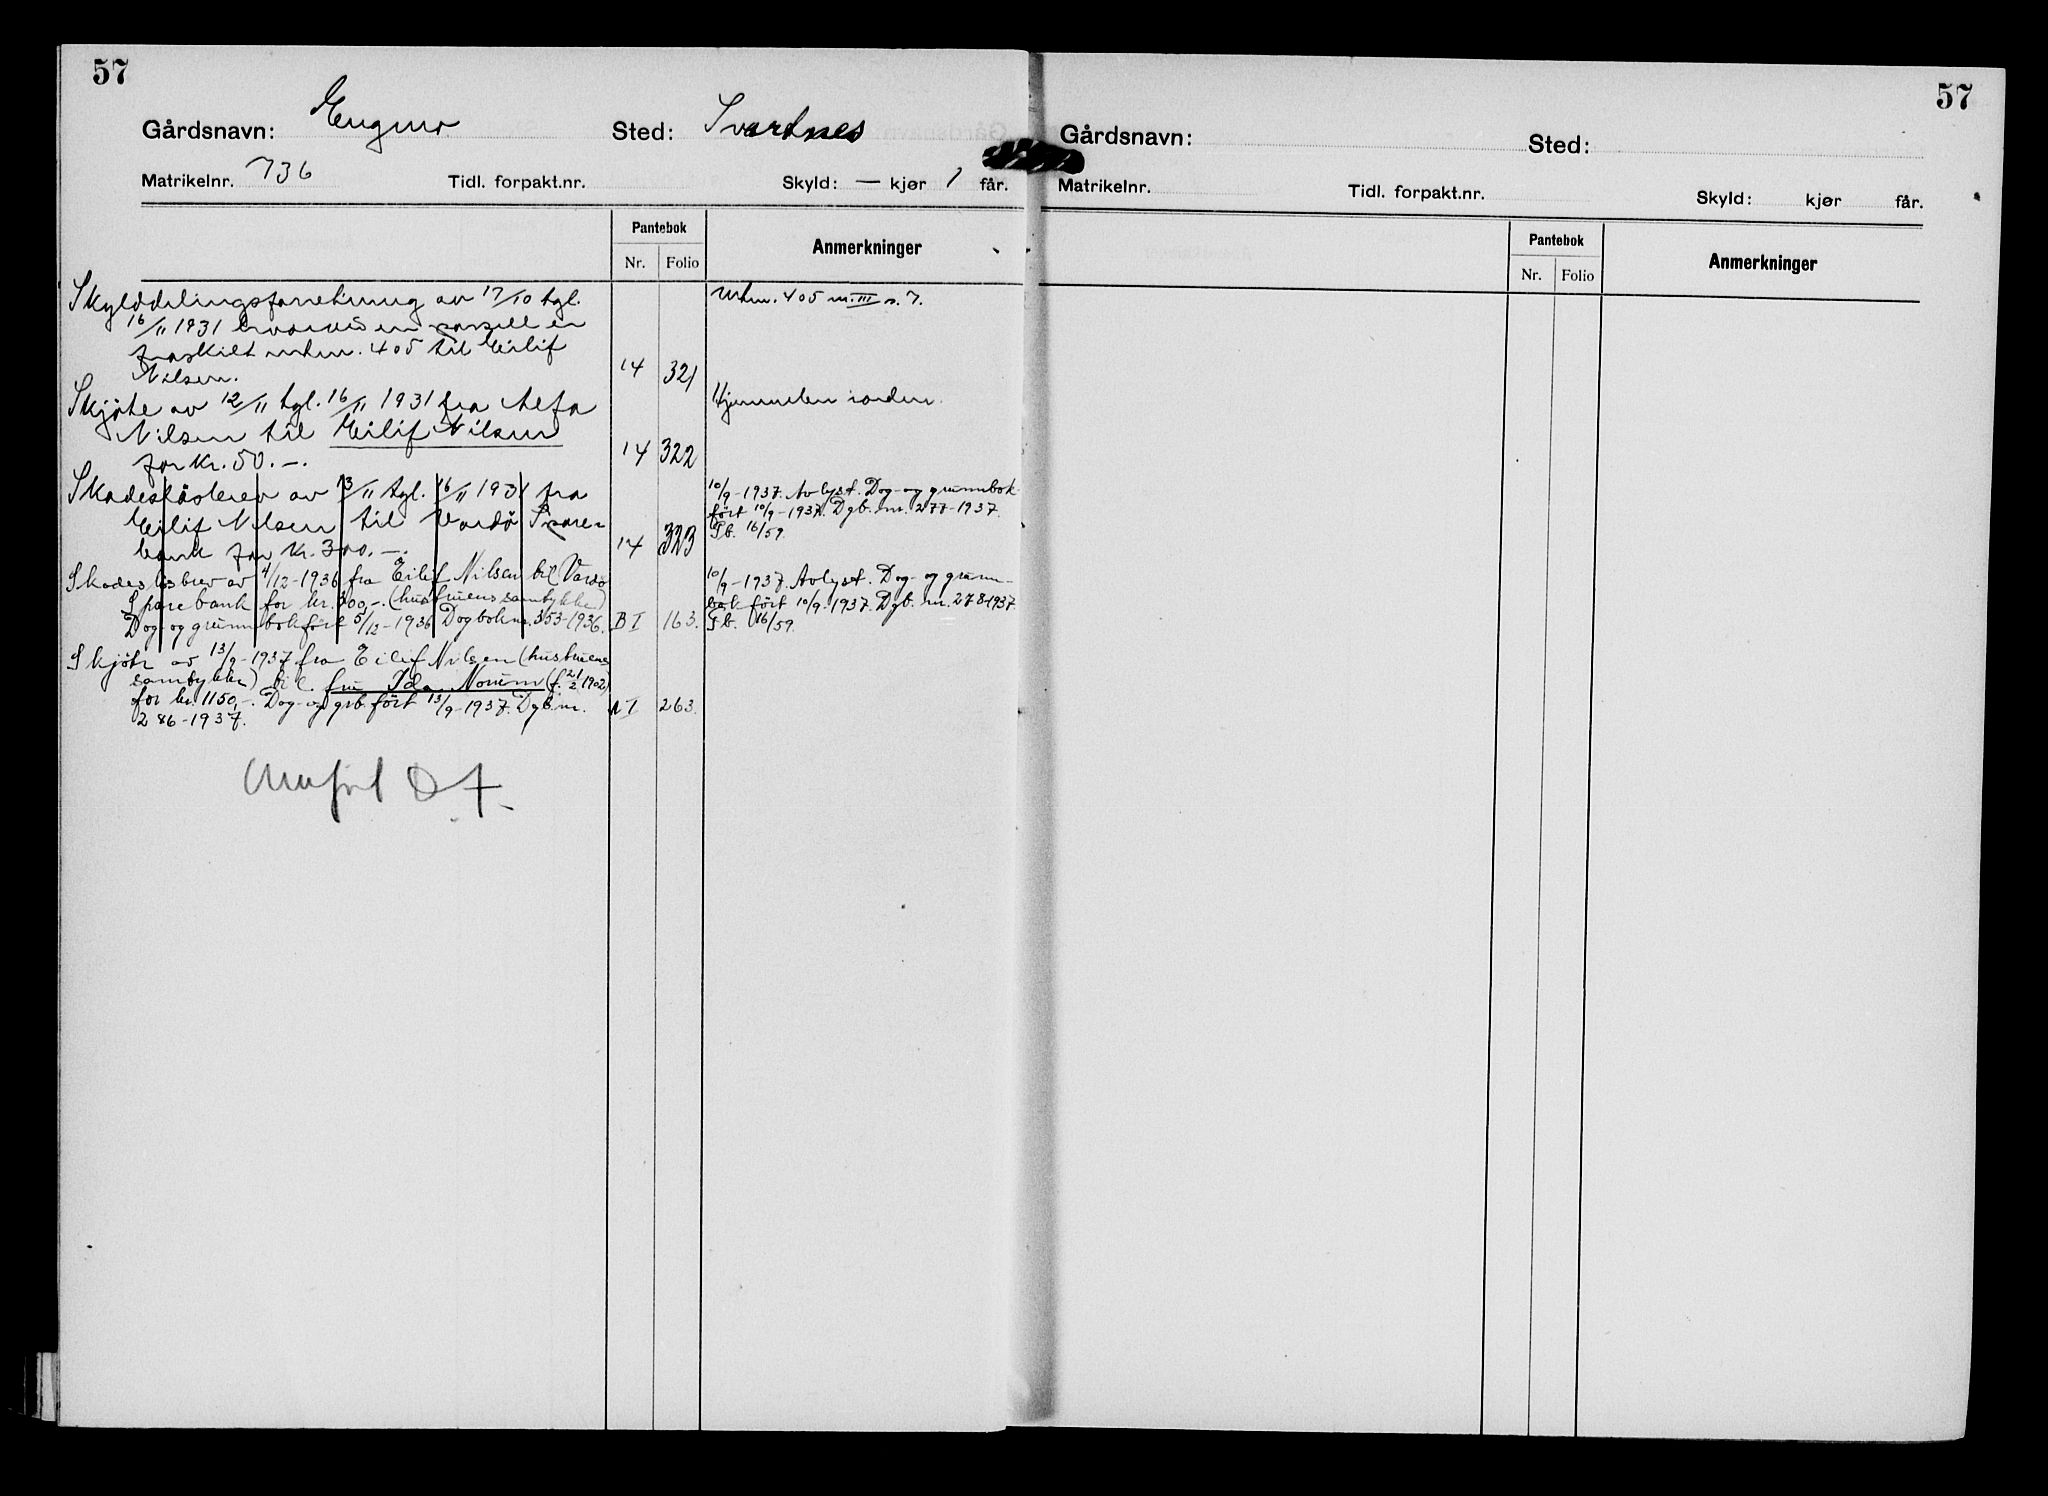 57
Gårdsnavn: Engmo Sted: Svartnes
Matrikelnr. 736 Tidl. forpakt.nr. Skyld: — kjør 1 får.
Pantebok
Nr. Folio Anmerkninger
Skylddelingsforretning av 17/10 tgl. mtnr. 405 m. III s. 7.
16/11 1931 hvorved en parsell er
fraskilt mtnr. 405 til Eilif
Nilsen. 14 321
Skjøte av 12/11 tgl. 16/11 1931 fra Hjemmelen i orden.
Nilsen til Eilif Nilsen
for kr. 50.–. 14 322
Skadesløsbrev av 13/11 tgl. 16/11 1931 fra 10/9-1937. Avlyst. Dag- og grunnbok-
Eilif Nilsen til Vardö Spare- ført 10/9-1937. Dgb. nr. 277-1937.
bank for kr. 300.–. 14 323 Pb. 16/59.
Skadesløsbrev av 4/12-1936 fra Eilif Nilsen til Vardø 10/9-1937. Avlyst. Dag- og grunn-
Sparebank for kr. 300,–. (hustruens samtykke) bok ført 10/9-1937. Dgb. nr. 278-1937.
Dag- og grunnbokført 5/12-1936 Dagboknr. 353-1936. B I 163. Pb. 16/59.
Skjøte av 13/9-1937 fra Eilif Nilsen (hustruens
samtykke) til fru Ida Norum (f. 21/2 1902)
for kr. 1150,–. Dag- og grb. ført 13/9-1937. Dgb. nr. A I 263.
286-1937.
57
Gårdsnavn: Sted:
Matrikelnr. Tidl. forpakt.nr. Skyld: kjør får.
Pantebok
Nr. Folio Anmerkninger